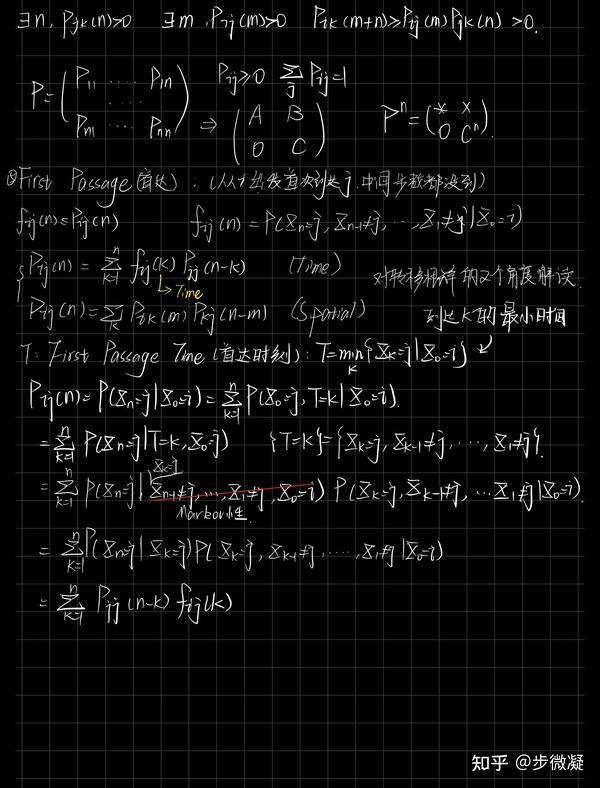 ∃n, P_jk(n)>0 ∃m, P_ij(m)>0 P_ik(m+n)≥P_ij(m)P_jk(n)>0.
P=(P_11 ···· P_1n
····
P_n1 ···· P_nn) P_ij≥0 ∑_j P_ij=1
⇒ (A B
0 C) P^n=(* *
0 C^n).
②First Passage(首达): (从i出发首次到达j,中间步数都没到)
f_ij(n)≤P_ij(n) f_ij(n)=P(X_n=j, X_n-1≠j, ···, X_1≠j|X_0=i)
{P_ij(n)=∑_{k=1}^n f_ij(k) P_jj(n-k) (Time)
↳Time
对转移概率的2个角度解读.
P_ij(n)=∑_k P_ik(m) P_kj(n-m) (Spatial) 到达K的最小时间
T: First Passage Time(首达时刻): T=min_k{X_k=j|X_0=i}
P_ij(n)=P(X_n=j|X_0=i)=∑_{k=1}^n P(X_n=j,T=k|X_0=i).
=∑_{k=1}^n P(X_n=j|T=k,X_0=i) {T=k}={X_k=j, X_k-1≠j, ···, X_1≠j}.
=∑_{k=1}^n P(X_n=j|X_k=j, X_n-1≠j, ···, X_1≠j, X_0=i) P(X_k=j, X_k-1≠j, ···X_1≠j|X_0=i).
Markov性
=∑_{k=1}^n P(X_n=j|X_k=j)P(X_k=j, X_k-1≠j, ····, X_1≠j|X_0=i)
=∑_{k=1}^n P_jj(n-k) f_ij(k)
知乎 @步微凝